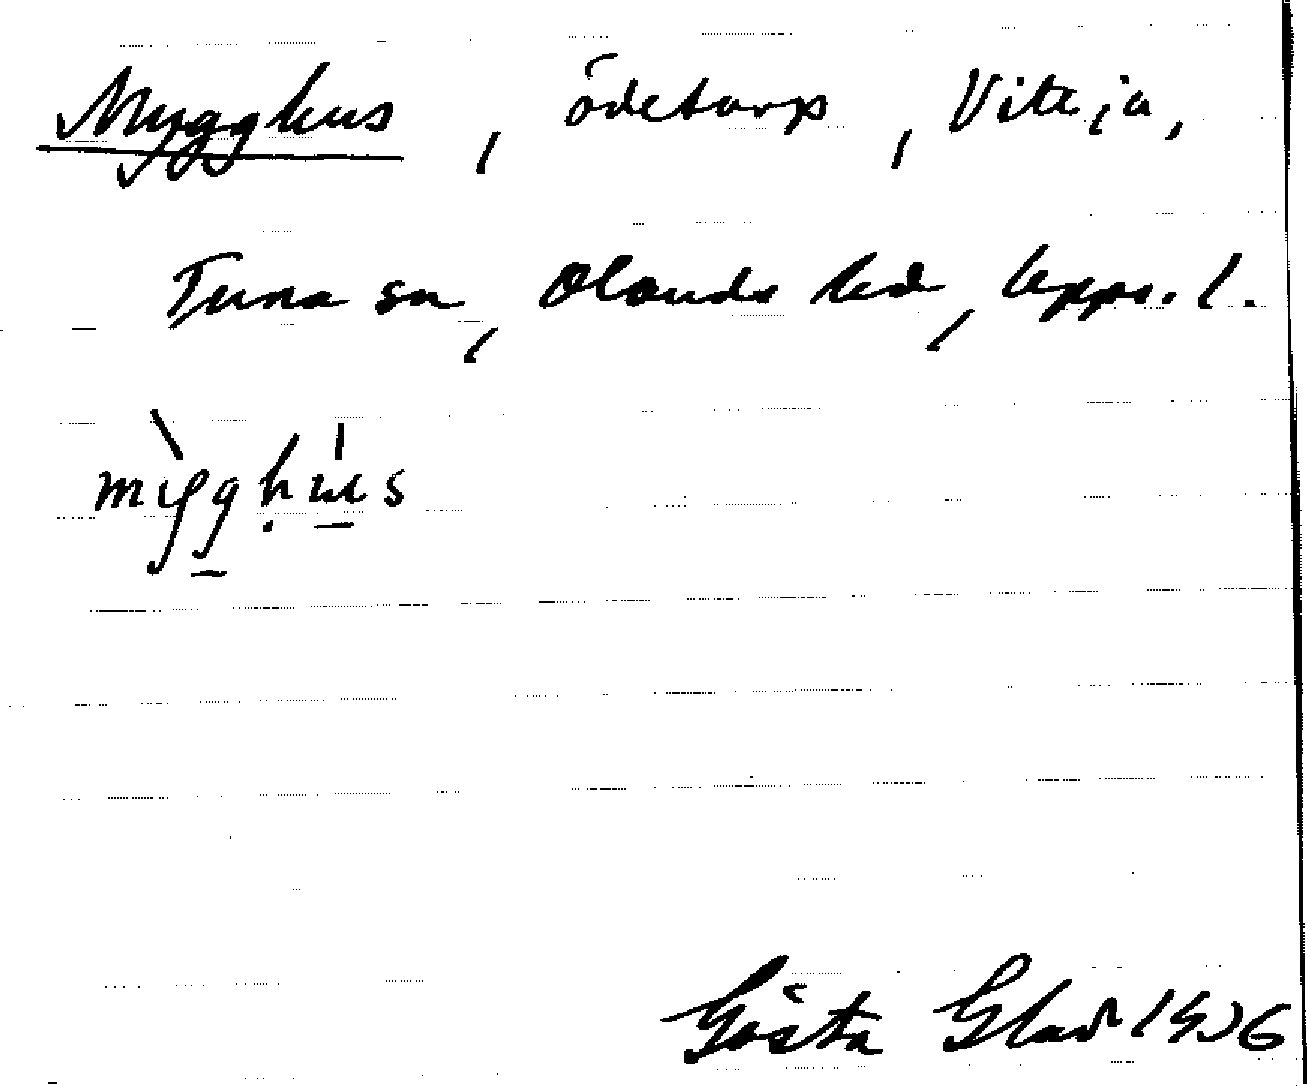 Mygghus, ödetorp, Viteja,
Tuna sn, Olands hd, Upps. l.
mygghus
Gösta Glad 1936